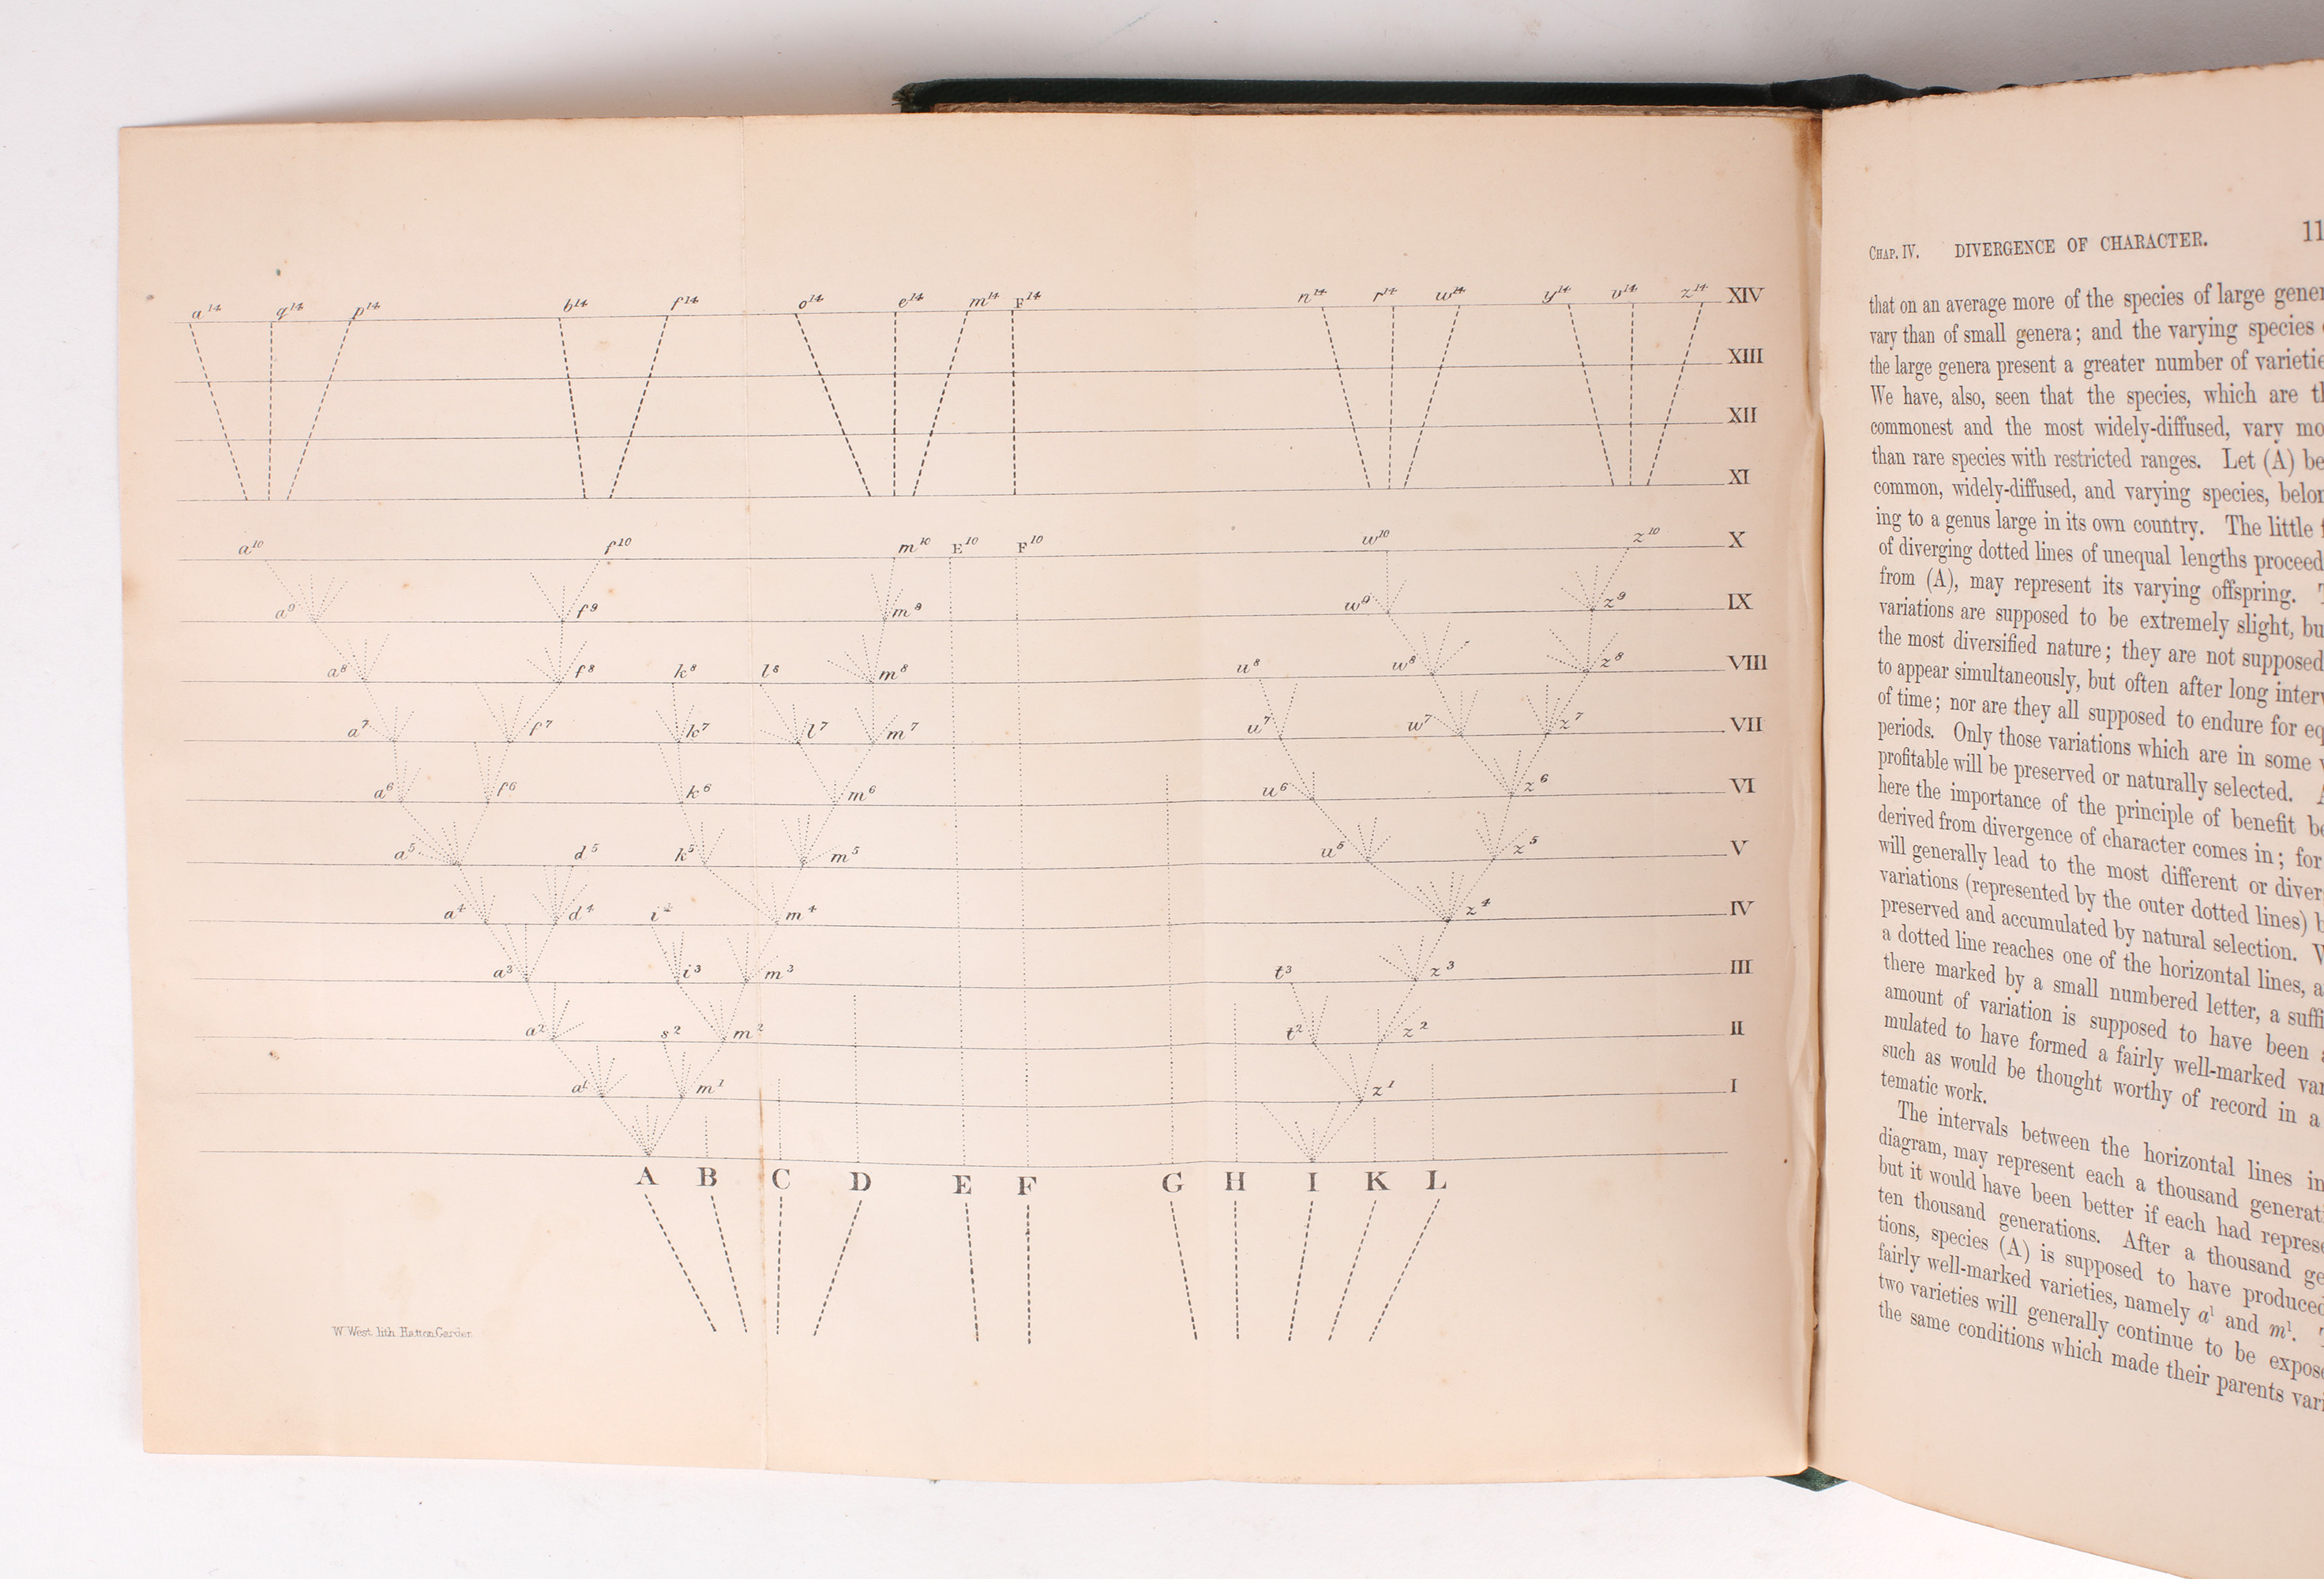 a¹⁴ q¹⁴ p¹⁴ b¹⁴ f¹⁴ o¹⁴ e¹⁴ m¹⁴ F¹⁴ n¹⁴ r¹⁴ w¹⁴ y¹⁴ v¹⁴ z¹⁴ XIV
XIII
XII
XI
a¹⁰ f¹⁰ m¹⁰ E¹⁰ F¹⁰ w¹⁰ z¹⁰ X
a⁹ f⁹ m⁹ w⁹ z⁹ IX
a⁸ f⁸ k⁸ l⁸ m⁸ u⁸ w⁸ z⁸ VIII
a⁷ f⁷ k⁷ l⁷ m⁷ u⁷ w⁷ z⁷ VII
a⁶ f⁶ k⁶ m⁶ u⁶ z⁶ VI
a⁵ d⁵ k⁵ m⁵ u⁵ z⁵ V
a⁴ d⁴ i⁴ m⁴ z⁴ IV
a³ i³ m³ t³ z³ III
a² s² m² t² z² II
a¹ m¹ z¹ I
A B C D E F G H I K L
W. West lith. Hatton Garden
CHAP. IV. DIVERGENCE OF CHARACTER. 11
that on an average more of the species of large gener
vary than of small genera; and the varying species
the large genera present a greater number of varietie
We have, also, seen that the species, which are th
commonest and the most widely-diffused, vary mo
than rare species with restricted ranges. Let (A) be
common, widely-diffused, and varying species, belon
ing to a genus large in its own country. The little f
of diverging dotted lines of unequal lengths proceed
from (A), may represent its varying offspring. T
variations are supposed to be extremely slight, bu
the most diversified nature; they are not supposed
to appear simultaneously, but often after long interv
of time; nor are they all supposed to endure for eq
periods. Only those variations which are in some w
profitable will be preserved or naturally selected. A
here the importance of the principle of benefit be
derived from divergence of character comes in; for
will generally lead to the most different or diver
variations (represented by the outer dotted lines) b
preserved and accumulated by natural selection. W
a dotted line reaches one of the horizontal lines, a
there marked by a small numbered letter, a suffi
amount of variation is supposed to have been a
mulated to have formed a fairly well-marked var
such as would be thought worthy of record in a
tematic work.
The intervals between the horizontal lines in
diagram, may represent each a thousand generati
but it would have been better if each had represe
ten thousand generations. After a thousand ge
tions, species (A) is supposed to have produced
fairly well-marked varieties, namely a¹ and m¹. T
two varieties will generally continue to be expose
the same conditions which made their parents vari